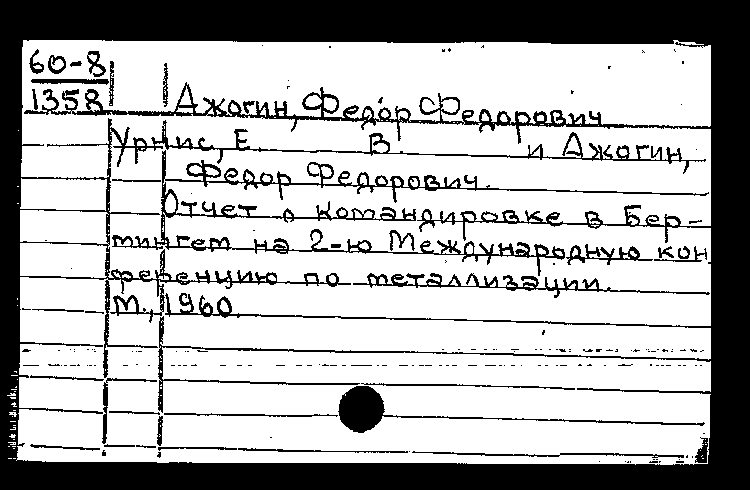 60-8
1358
Джогин, Федор Федорович
Урнис, Е. В. и Джогин,
Федор Федорович.
Отчет о командировке в Бер-
мингем на 2-ю Международную кон
ференцию по металлизации.
М., 1960.